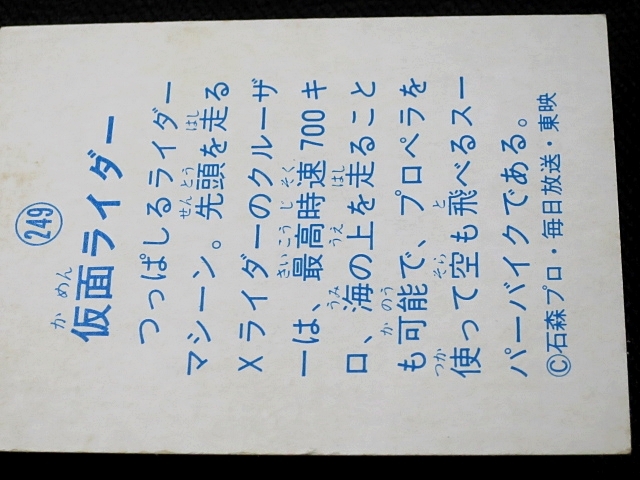 249
仮面ライダー
つっぱしるライダー
マシーン。先頭を走る
Xライダーのクルーザ
ーは、最高時速700キ
ロ、海の上を走ること
も可能で、プロペラを
使って空も飛べるスー
パーバイクである。
©石森プロ・毎日放送・東映